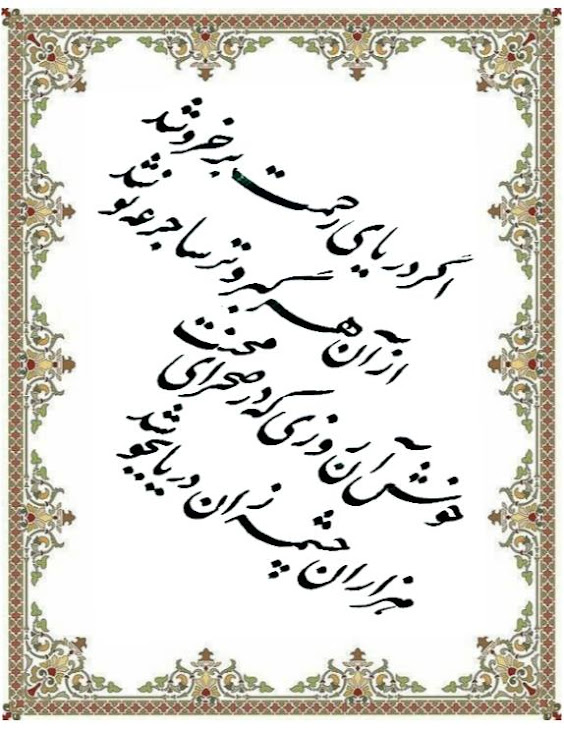 اگر دریای رحمت بر خروشد
از آن هر گبر و ترسا جرعه نوشد
خوش آن روزی که در صحرای محنت
هزاران چشمه زان دریا بجوشد